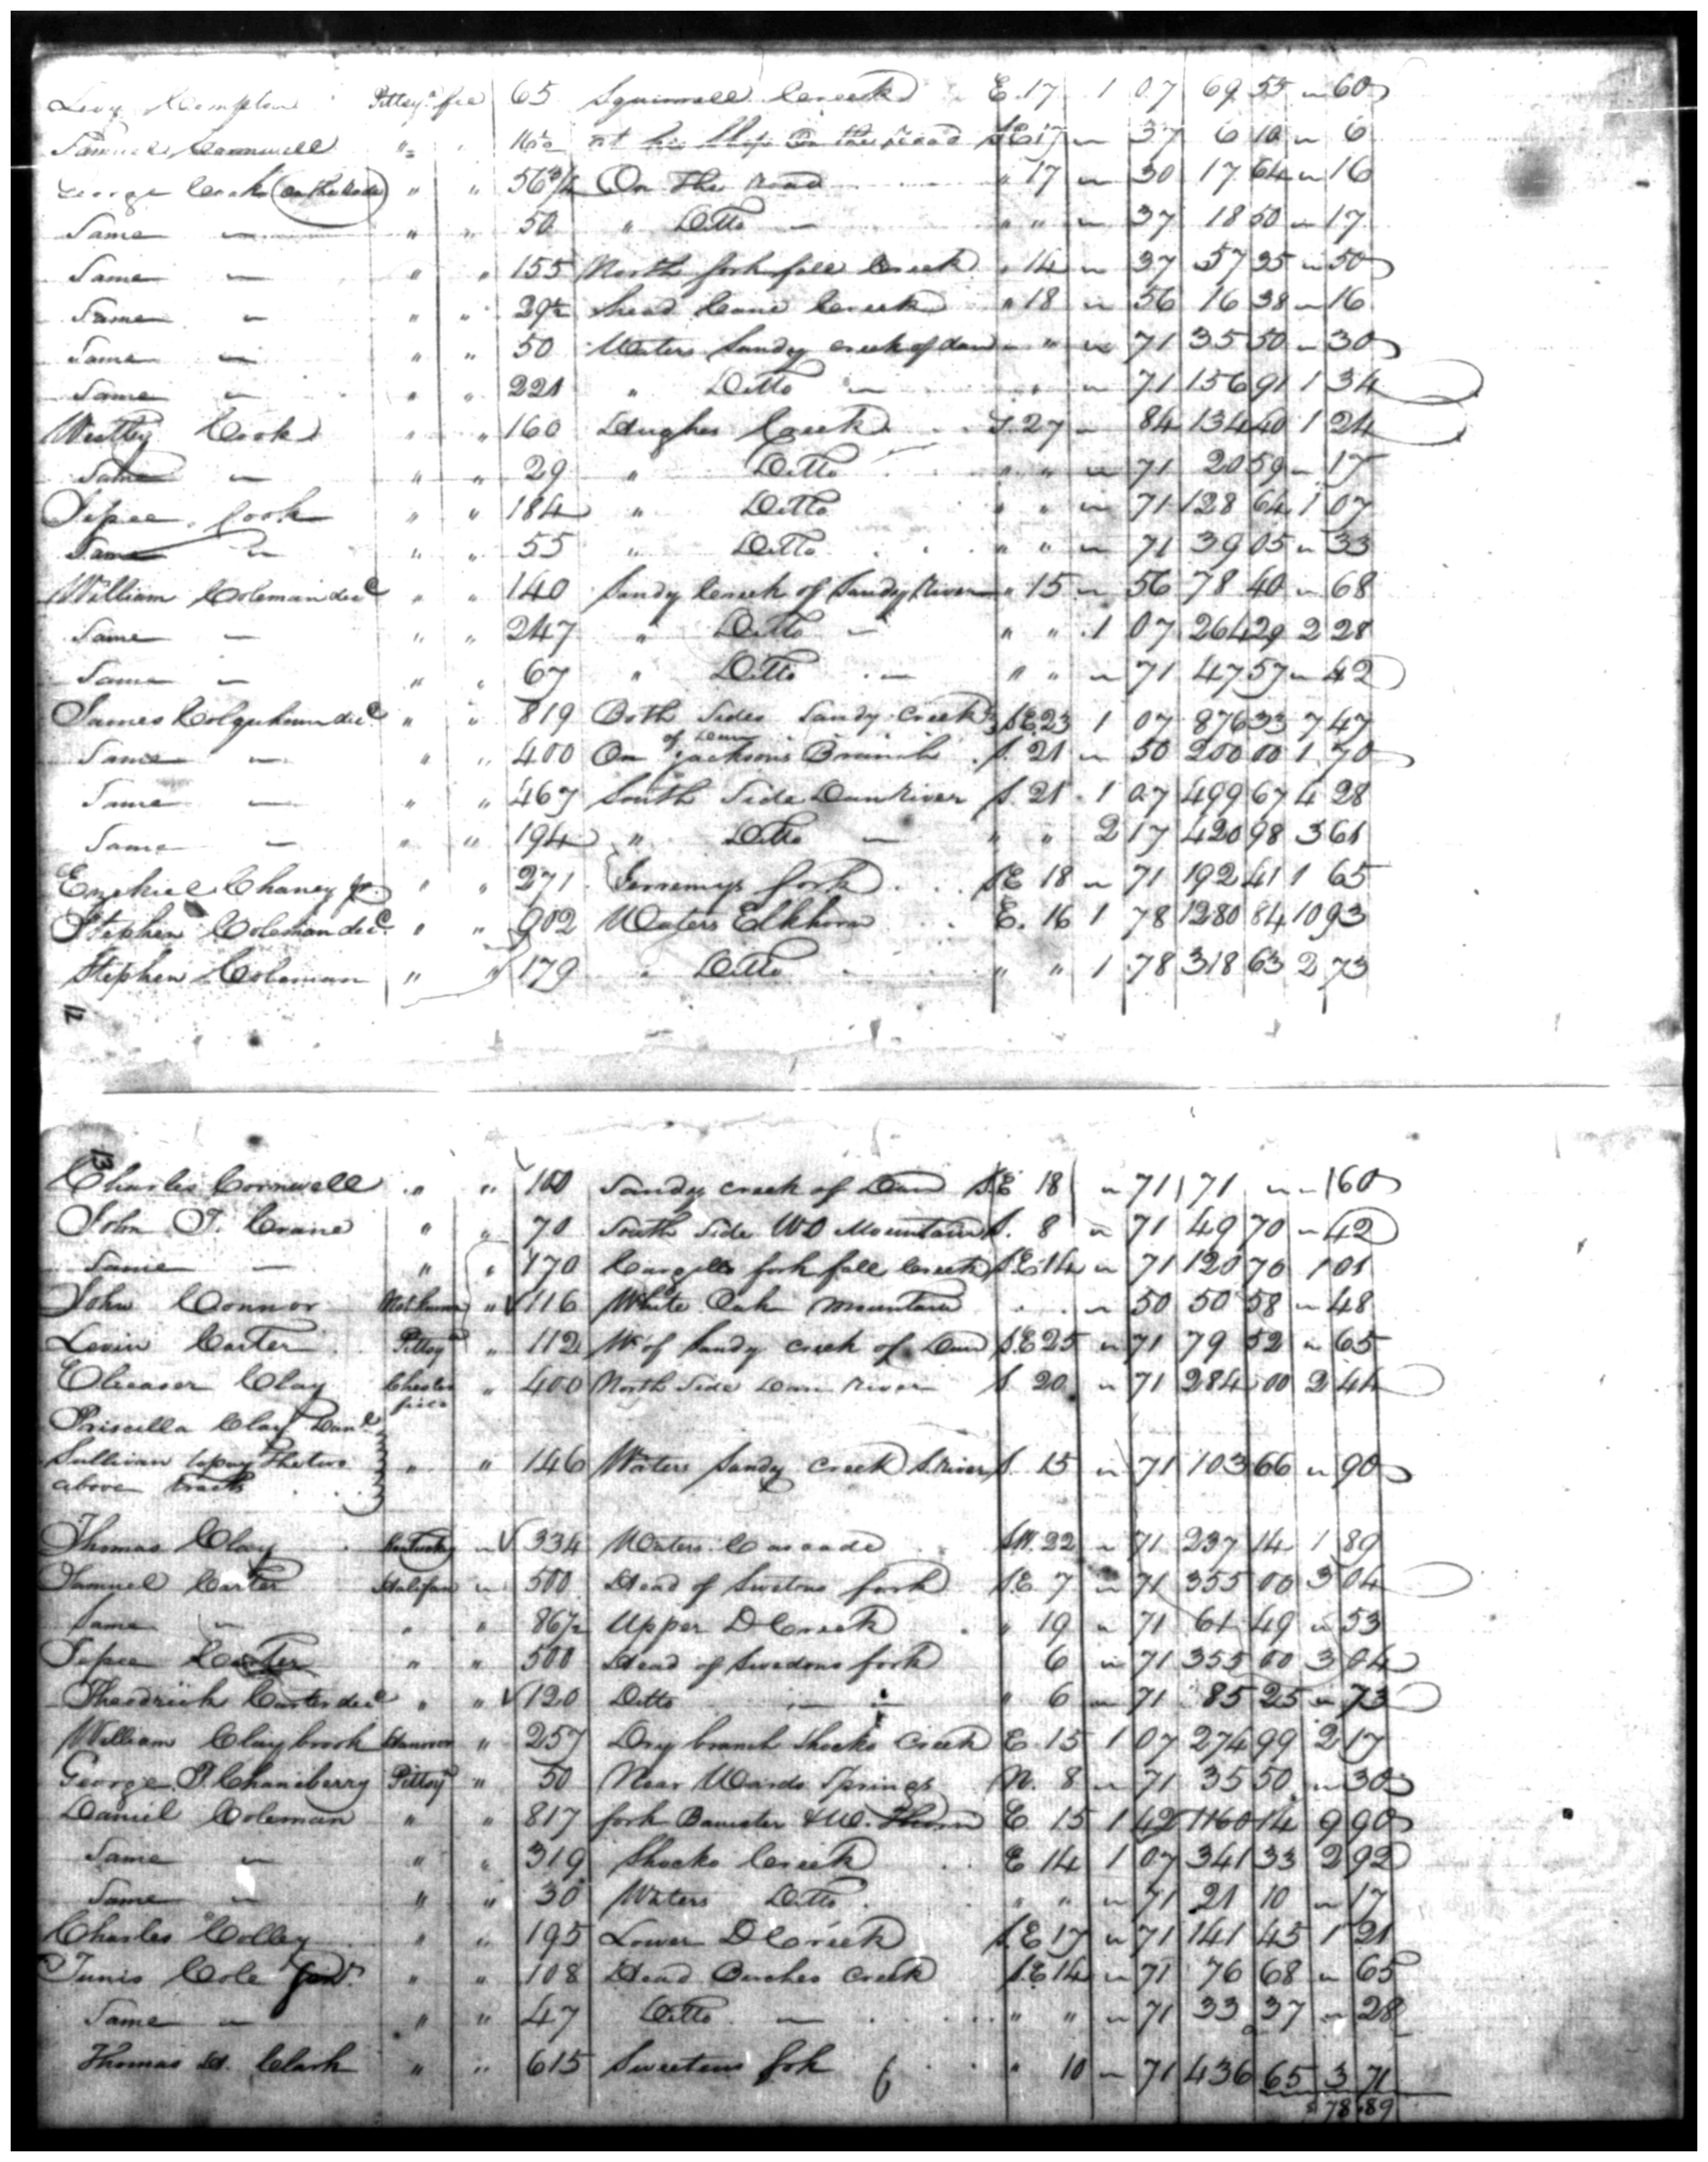 Levy Compton Pittsyᵃ fee 65 Squirrell Creek E. 17 1 07 69 55 " 60
Samuel Cornwell " " 16½ at his Shop on the road SE 17 " 37 6 10 " 6
George Cook (on the Rode) " " 56¾ On the road " 17 " 30 17 64 " 16
Same " " " 50 " Ditto " " " 37 18 50 " 17
Same " " " 155 North fork fall Creek " 14 " 37 57 35 " 50
Same " " " 29½ Head Cane Creek " 18 " 56 16 38 " 16
Same " " " 50 Waters Sandy creek of dan " " " 71 35 50 " 30
Same " " " 221 " Ditto " " " 71 156 91 1 34
Westley Cook " " 160 Hughes Creek S. 27 " 84 134 40 1 24
Same " " " 29 " Ditto " " " 71 20 59 " 17
Jesse Cook " " 184 " Ditto " " " 71 128 64 1 07
Same " " " 55 " Ditto " " " 71 39 05 " 33
William Coleman decᵈ " " 140 Sandy Creek of Sandy River " 15 " 56 78 40 " 68
Same " " " 247 " Ditto " " " 1 07 264 29 2 28
Same " " " 67 " Ditto " " " 71 47 57 " 42
James Colquhoun decᵈ " " 819 Both Sides Sandy Creek SE 23 1 07 876 33 7 47
of Dan
Same " " " 400 On Jacksons Branch S. 21 " 50 200 00 1 70
Same " " " 467 South Side Dan River S. 21 1 07 499 67 4 28
Same " " " 194 " Ditto " " " 2 17 420 98 3 61
Ezekiel Chaney jr. " " 271 Jerremys fork SE 18 " 71 192 41 1 65
Stephen Coleman decᵈ " " 902 Waters Elkhorn E. 16 1 78 1280 84 10 93
Stephen Coleman " " 179 " Ditto " " 1 78 318 63 2 73
12
13
Charles Cornwell " " 100 Sandy creek of Dan SE 18 " 71 71 " " 60
John T. Crane " " 70 South Side W O Mountain S. 8 " 71 49 70 " 42
Same " " " 170 Cargills fork fall Creek S.E. 14 " 71 120 70 1 01
John Connor " 116 White Oak Mountain " 50 50 58 " 48
Levin Carter Pittsyᵃ " 112 Wˢ of Sandy creek of Dan S.E 25 " 71 79 52 " 65
Eleaser Clay Chester " 400 North Side Dan River S. 20 " 71 284 00 2 44
field
Priscilla Clay Danˡ
Sullivan to pay the two " " 146 Waters Sandy Creek S. River S. 15 " 71 103 66 " 90
above tracts
Thomas Clay Kentucky " 334 Waters Cascade SW. 22 " 71 237 14 1 89
Samuel Carter Halifax " 500 Head of Swetons fork S.E. 7 " 71 355 00 3 04
Same " " " 86½ Upper D Creek " 19 " 71 61 49 " 53
Jesse Carter " " 500 Head of Swedons fork 6 " 71 355 00 3 04
Theodrick Carter decᵈ " " 120 Ditto " 6 " 71 85 25 " 73
William Claybrook Hanover " 257 Dry branch Shocko Creek E. 15 1 07 274 99 2 17
George P. Chaneberry Pittsyᵃ " 50 Near Wards Springs N. 8 " 71 35 50 " 30
Daniel Coleman " " 817 fork Banister & W. Thorn E 15 1 42 1160 14 9 90
Same " " " 319 Shocko Creek E 14 1 07 341 33 2 92
Same " " " 30 Waters Ditto " " " 71 21 10 " 17
Charles Colley " " 195 Lower D Creek S.E 17 " 71 141 45 1 21
Tunis Cole Senʳ " " 108 Head Burches Creek S.E 14 " 71 76 68 " 65
Same " " " 47 Ditto " " " " 71 33 37 " 28
Thomas H. Clark " " 615 Sweetens fork " 10 " 71 436 65 3 71
$ 78.89